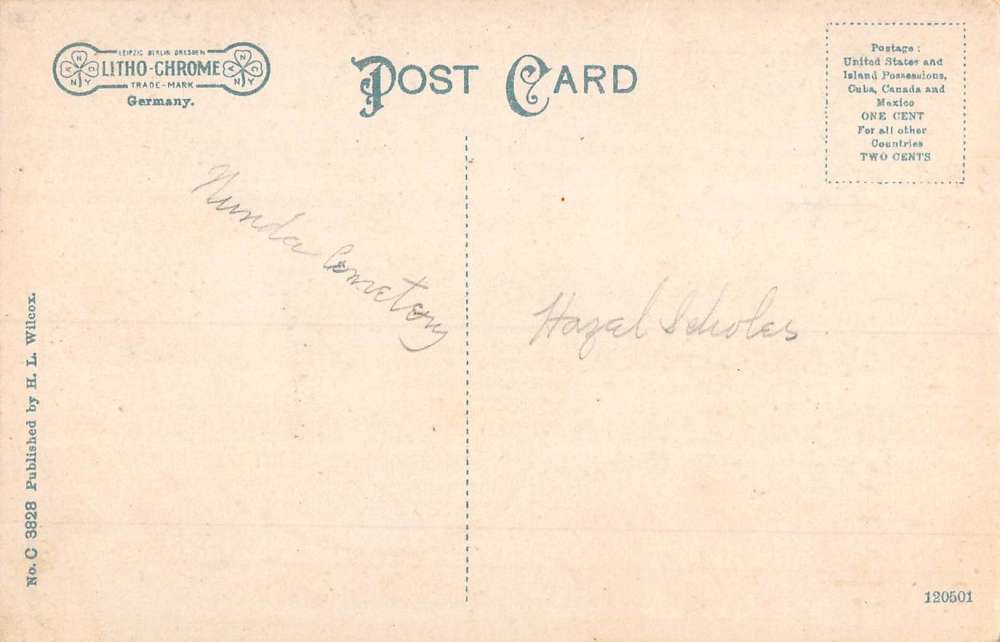 LEIPZIG BERLIN DRESDEN
LITHO-CHROME
TRADE-MARK
Germany.
POST CARD
Postage:
United States and
Island Possessions,
Cuba, Canada and
Mexico
ONE CENT
For all other
Countries
TWO CENTS
Nunda Cemetery
Hazel Scholes
No. C 3828 Published by H. L. Wilcox.
120501